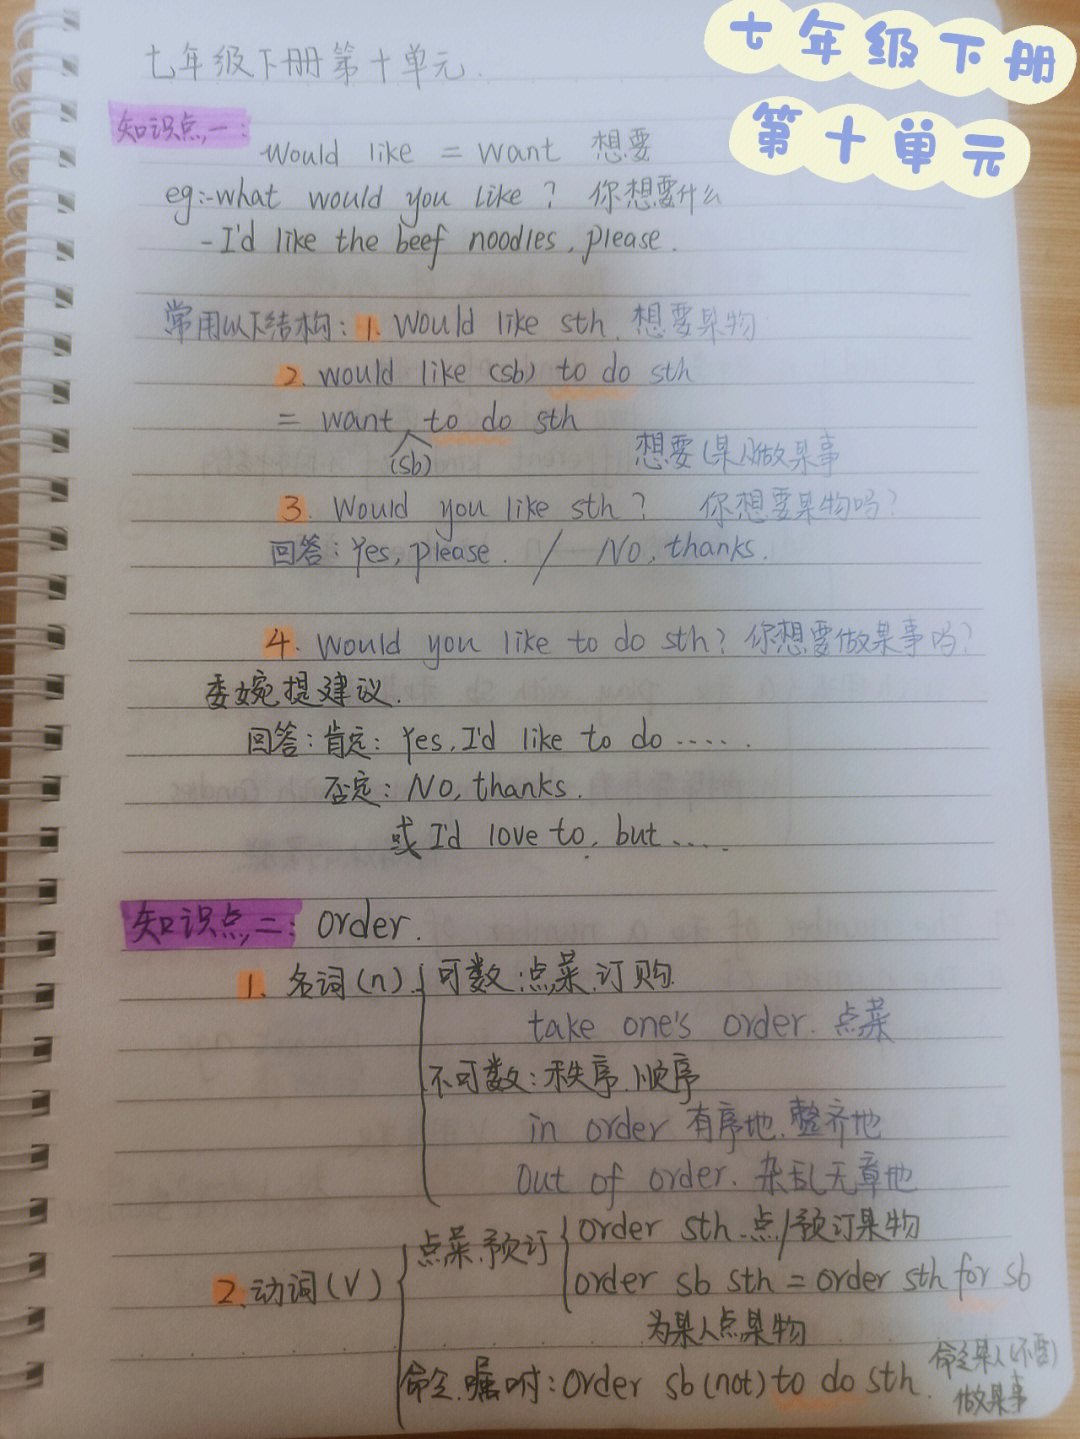 七年级下册第十单元.
七年级下册
第十单元
知识点一:
Would like = want 想要
eg:-what would you like? 你想要什么
-I'd like the beef noodles, please.
常用以下结构: 1. Would like sth. 想要某物
2. would like (sb) to do sth
= want to do sth
(sb) 想要(某人)做某事
3. Would you like sth? 你想要某物吗?
回答: Yes, please. / No, thanks.
4. Would you like to do sth? 你想要做某事吗?
委婉提建议.
回答: 肯定: Yes, I'd like to do ......
否定: No, thanks.
或 I'd love to, but .....
知识点二: order.
1. 名词(n) 可数: 点菜.订购
take one's order. 点菜
不可数: 秩序.顺序
in order 有序地.整齐地
Out of order. 杂乱无章地
点菜.预订 order sth 点/预订某物
2.动词(V) order sb sth = order sth for sb
为某人点某物
命令.嘱咐: order sb (not) to do sth. 命令某人(不要)
做某事